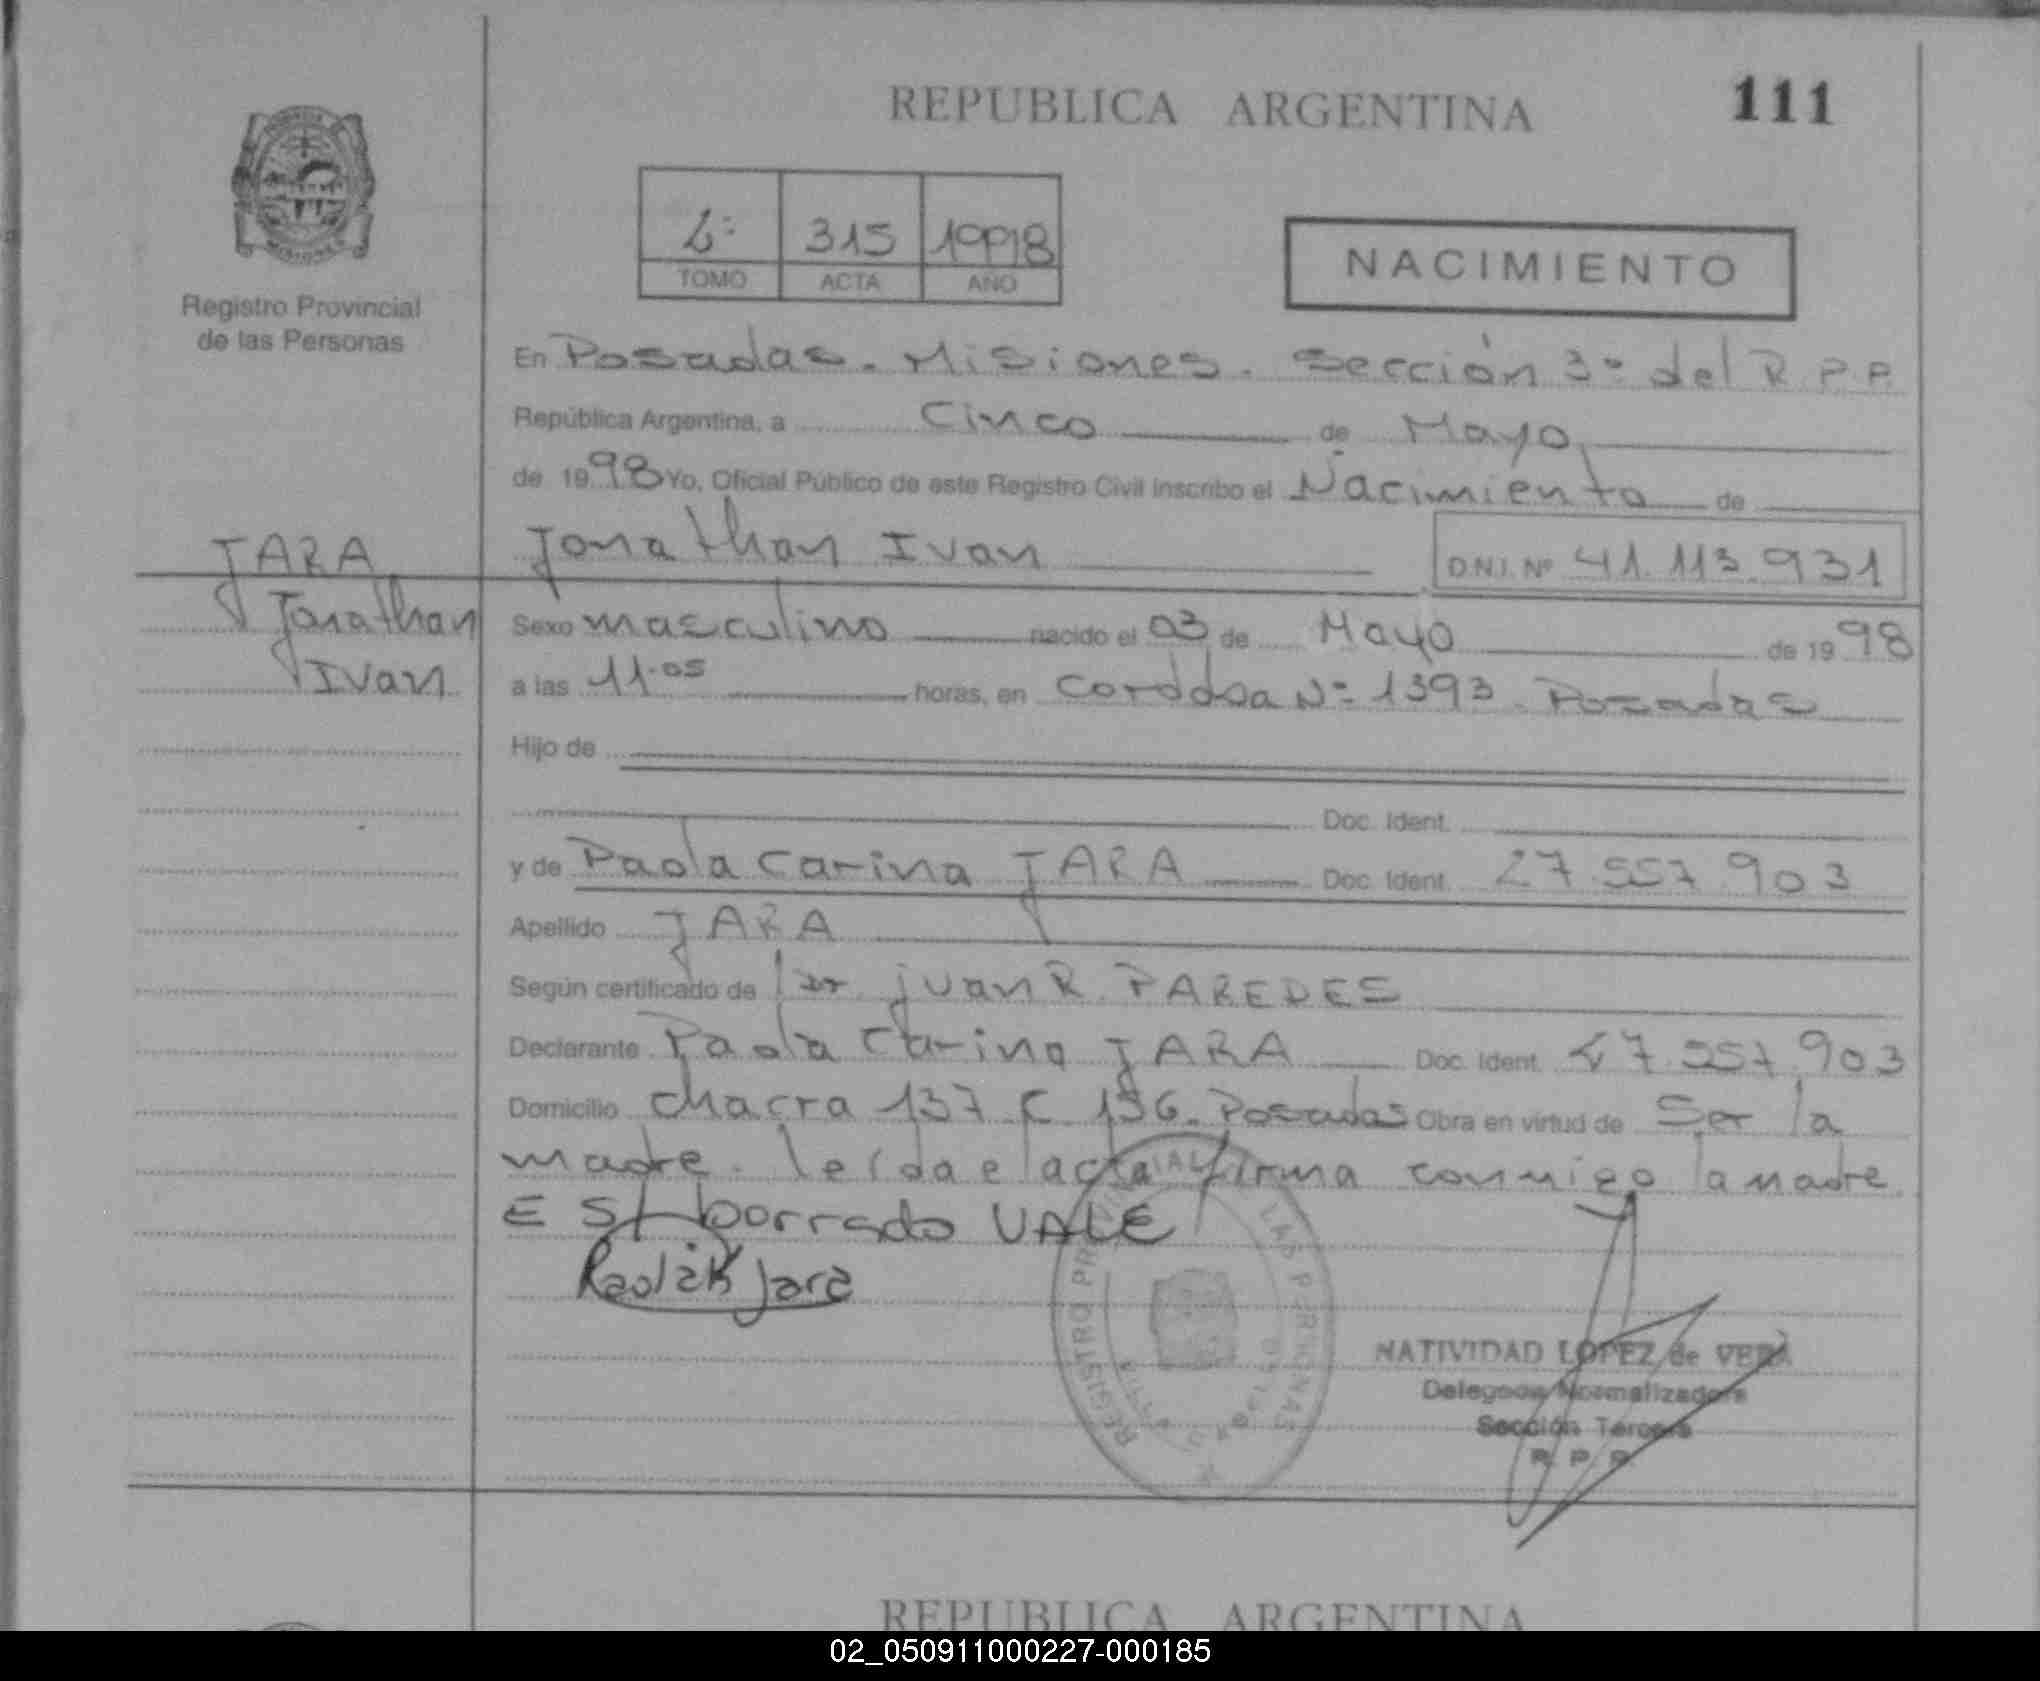 REPUBLICA ARGENTINA
111
Registro Provincial
de las Personas
315 1998
TOMO ACTA AÑO
NACIMIENTO
En Posadas. Misiones. Sección 3º del R.P.P.
República Argentina, a Cinco de Mayo
de 1998 Yo, Oficial Público de este Registro Civil inscribo el Nacimiento de
JARA
Jonathan
Ivan
Jonathan Ivan
D.N.I. Nº 41.113.931
Sexo masculino nacido el 03 de Mayo de 1998
a las 11.05 horas, en Cordoba Nº 1393. Posadas
Hijo de
Doc. Ident.
y de Paola Carina JARA Doc. Ident. 27.557.903
Apellido JARA
Según certificado de Dr. Juan R. PAREDES
Declarante Paola Carina JARA Doc. Ident. 27.557.903
Domicilio chacra 137 C 136. Posadas Obra en virtud de Ser la
madre. leída el acta firma conmigo la madre
E S/ borrado VALE
Paola K Jara
REGISTRO PROVINCIAL LAS PERSONAS
NATIVIDAD LOPEZ de VERA
Delegada Normalizadora
Sección Tercera
R. P. P.
REPUBLICA ARGENTINA
02_050911000227-000185